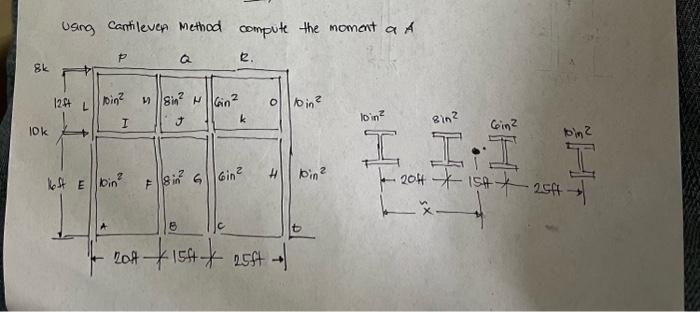 Using Cantilever Method compute the moment @ A
P Q R.
8k
12ft L 10in² M 8in² N 6in² O 10in²
I J K
10k
16ft E 10in² F 8in² G 6in² H 10in²
A B C D
20ft 15ft 25ft
10in² 8in² 6in² 10in²
20ft 15ft 25ft
x